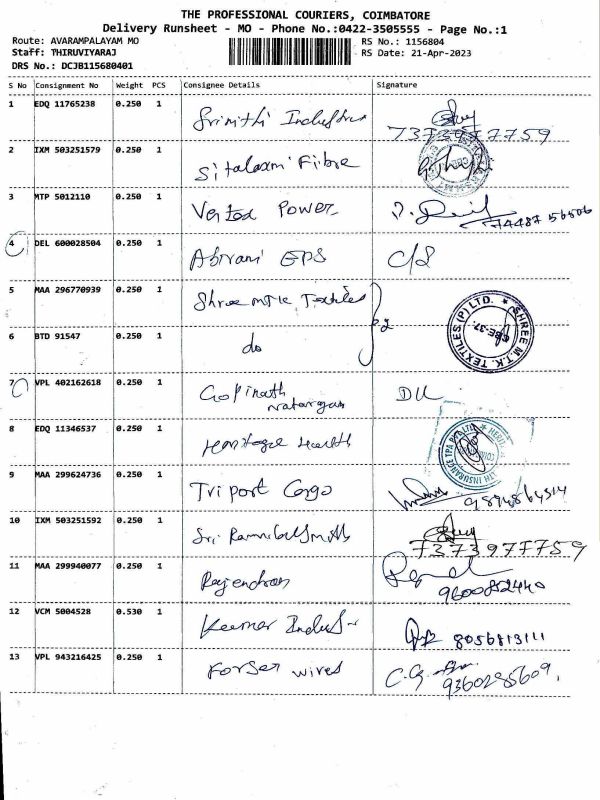 THE PROFESSIONAL COURIERS, COIMBATORE
Delivery Runsheet - MO - Phone No.:0422-3505555 - Page No.:1
Route: AVARAMPALAYAM MO RS No.: 1156804
Staff: THIRUVIYARAJ RS Date: 21-Apr-2023
DRS No.: DCJB115680401
S No Consignment No Weight PCS Consignee Details Signature
1 EDQ 11765238 0.250 1 Srinithi Industries
7373977759
2 IXM 503251579 0.250 1 Sitalaxmi Fibre
3 MTP 5012110 0.250 1 Power
74487 56506
4 DEL 600028504 0.250 1 Abirami EPS C/S
5 MAA 296770939 0.250 1 Shree MTK Textiles
SHREE M.T.K. TEXTILES (P) LTD.
CBE-37.
6 BTD 91547 0.250 1 do
7 VPL 402162618 0.250 1 Gopinath
Natarajan
8 EDQ 11346537 0.250 1 Heritage Health
HERITAGE HEALTH INSURANCE TPA PVT LTD
9 MAA 299624736 0.250 1 Triport Cargo
9894864314
10 IXM 503251592 0.250 1 Sri
7373977759
11 MAA 299940077 0.250 1 Rajendran
9600852440
12 VCM 5004528 0.530 1
8056813111
13 VPL 943216425 0.250 1 wires
9360285609